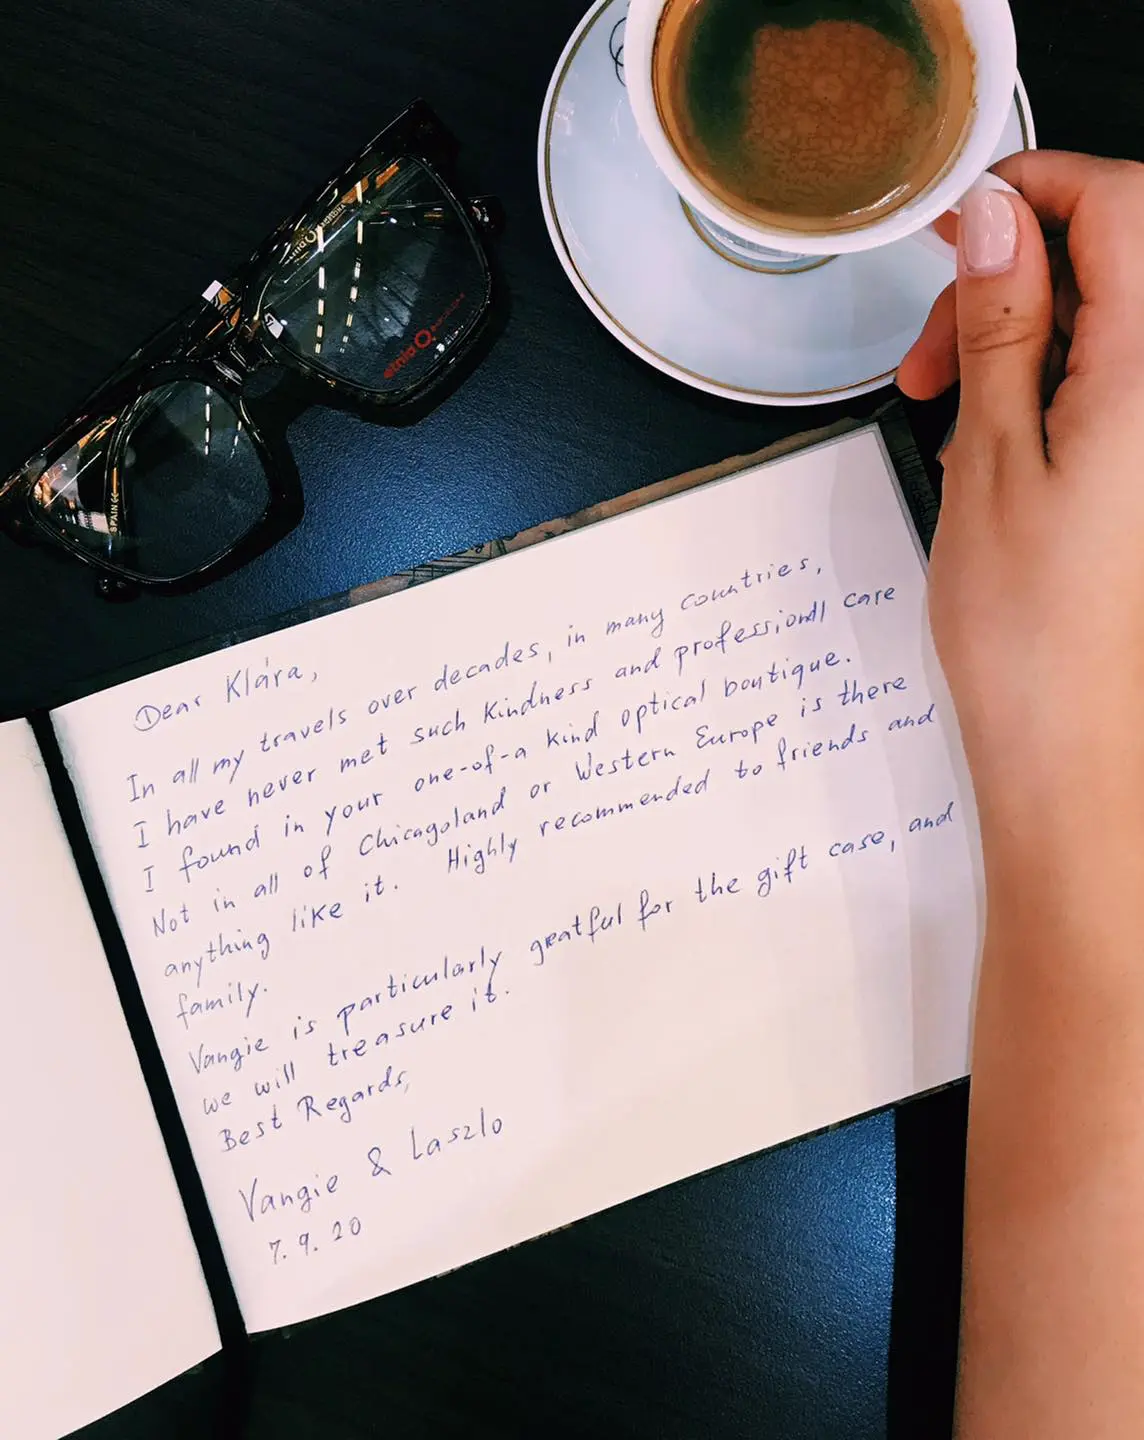 etnia BARCELONA
etnia BARCELONA
57
SPAIN CE
Dear Klára,
In all my travels over decades, in many countries,
I have never met such kindness and professionall care
I found in your one-of-a kind optical boutique.
Not in all of Chicagoland or Western Europe is there
anything like it. Highly recommended to friends and
family.
Vangie is particularly greatful for the gift case, and
we will treasure it.
Best Regards,
Vangie & Laszlo
7. 9. 20